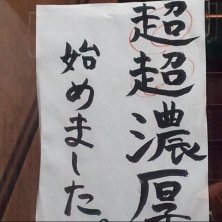 超超濃厚
始めました。